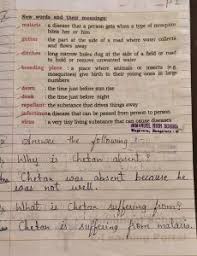 New words and their meanings:
malaria a disease that a person gets when a type of mosquito
bites her or him
gutter the part at the side of a road where water collects
and flows away
ditches long narrow holes dug at the side of a field or road
to hold or remove unwanted water
breeding place a place where animals or insects (e.g.
mosquitoes) give birth to their young ones in large
numbers
dawn the time just before sun rise
dusk the time just before night
repellant the substance that drives things away
infectious diseases that can be passed from person to person
virus a very tiny living substance that can cause diseases
Answer the following :-
Why is Chetan absent?
Chetan was absent because he
was not well.
What is Chetan suffering from?
Chetan is suffering from malaria.